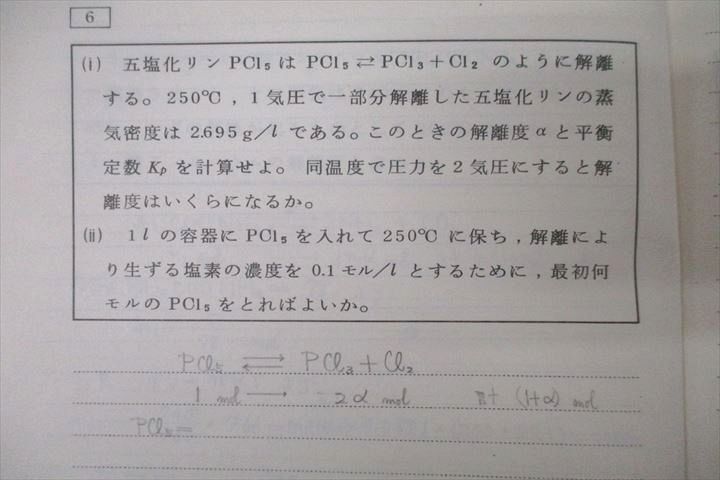 6
(i) 五塩化リン PCl₅ は PCl₅ ⇄ PCl₃ + Cl₂ のように解離
する。250℃ , 1 気圧で一部分解離した五塩化リンの蒸
気密度は 2.695 g/l である。このときの解離度 α と平衡
定数 Kp を計算せよ。 同温度で圧力を 2 気圧にすると解
離度はいくらになるか。
(ii) 1 l の容器に PCl₅ を入れて 250℃ に保ち , 解離によ
り生ずる塩素の濃度を 0.1 モル/l とするために , 最初何
モルの PCl₅ をとればよいか。
PCl₅ ⇄ PCl₃ + Cl₂
1 mol → 2α mol (1+α) mol
PCl₅ =